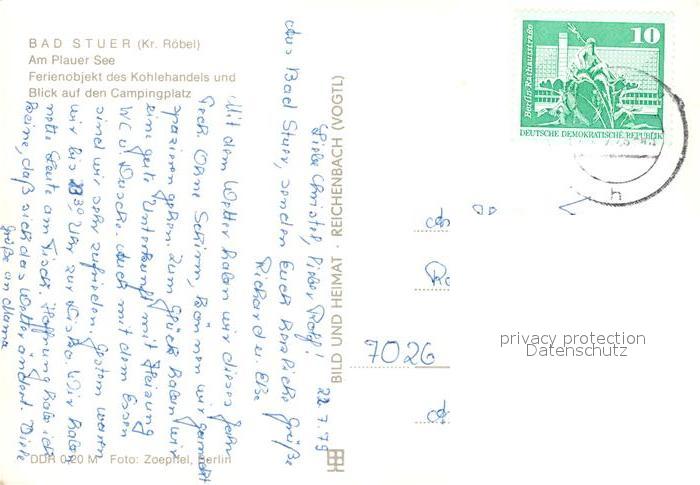 BAD STUER (Kr. Röbel)
Am Plauer See
Ferienobjekt des Kohlehandels und
Blick auf den Campingplatz
BILD UND HEIMAT · REICHENBACH (VOGTL)
DDR 0,20 M Foto: Zoephel, Berlin
Berlin, Rathausstraße
10
DEUTSCHE DEMOKRATISCHE REPUBLIK
h
22.7.79
Liebe Christel, lieber Rolf!
Aus Bad Stuer, senden Euch herzliche Grüße
Richard u. Else
Mit dem Wetter haben wir dieses Jahr
Pech. Ohne Schirm, können wir garnicht
spazieren gehen. Zum Glück haben wir
eine gute Unterkunft mit Heizung
WC u. Dusche. Auch mit dem Essen
sind wir sehr zufrieden. Gestern waren
wir bis Uhr zur Disko. Wir haben
nette Leute am Tisch. Hoffnung habe ich
keine, daß sich das Wetter ändert. Viele
Grüße an Mama
7026
privacy protection
Datenschutz